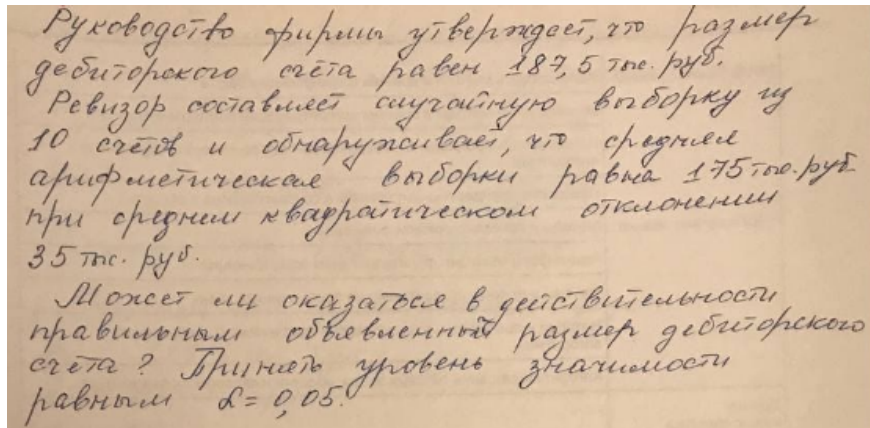 Руководство фирмы утверждает, что размер
дебиторского счёта равен 187,5 тыс. руб.
Ревизор составляет случайную выборку из
10 счётов и обнаруживает, что средняя
арифметическая выборки равна 175 тыс. руб
при среднем квадратическом отклонении
35 тыс. руб.
Может ли оказаться в действительности
правильным объявленный размер дебиторского
счёта? Принять уровень значимости
равным α = 0,05.